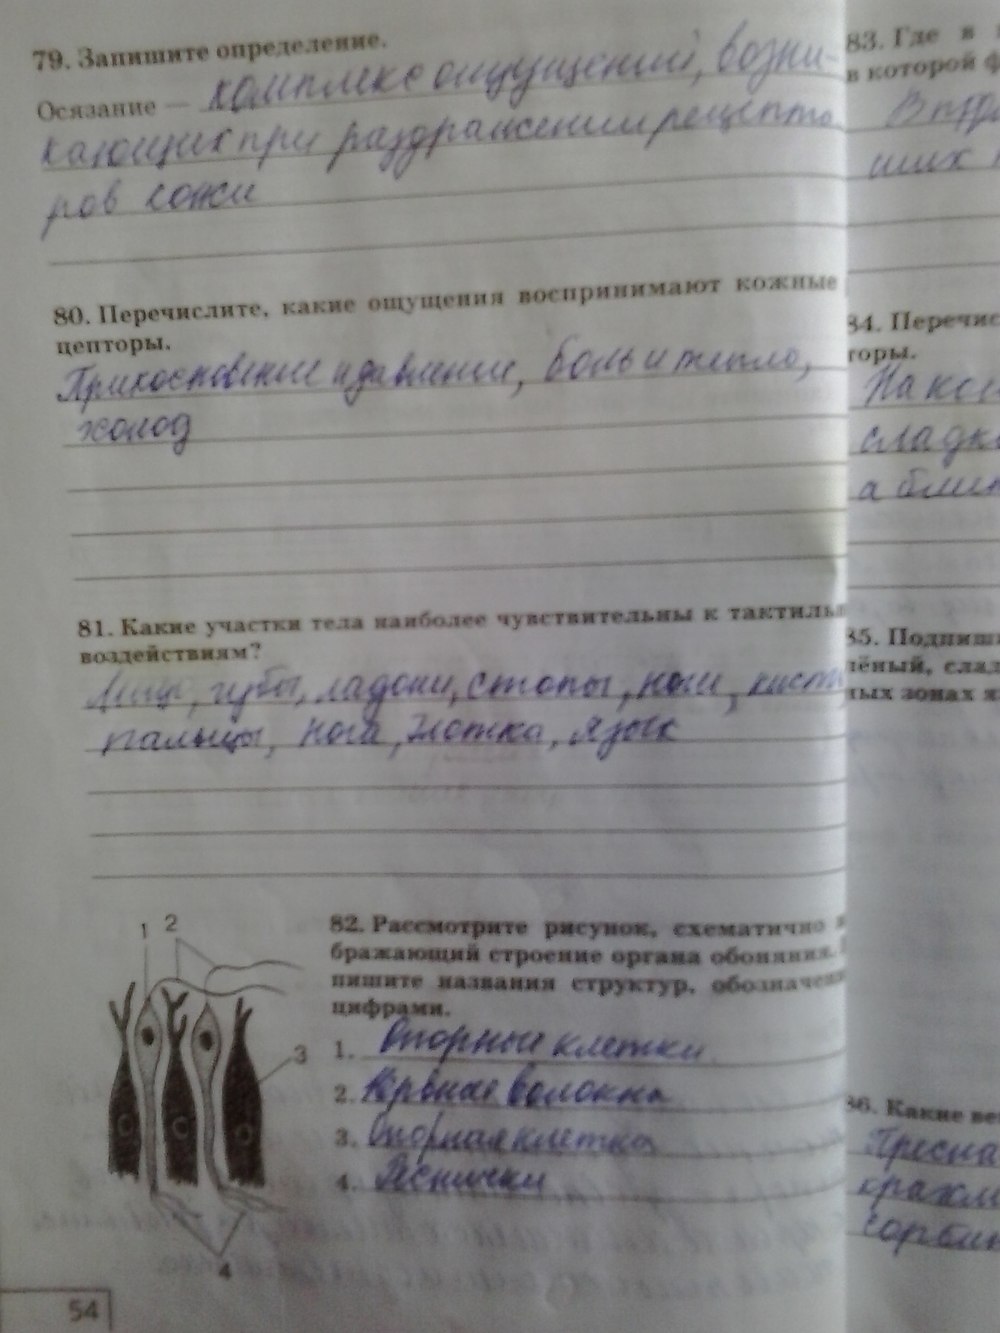 79. Запишите определение.
Осязание — комплекс ощущений, возни-
кающих при раздражении рецепто
ров кожи
80. Перечислите, какие ощущения воспринимают кожные
цепторы.
Прикосновение и давление, боль и тепло,
холод
81. Какие участки тела наиболее чувствительны к тактиль
воздействиям?
губы, ладони, стопы,
пальцы, нога, глотка, язык
1 2
82. Рассмотрите рисунок, схематично
бражающий строение органа обоняния.
пишите названия структур, обозначен
цифрами.
3
1. Опорные клетки
2. Нервные волокна
3. Опорная клетка
4. Реснички
4
54
83. Где в
в которой ф
ших
34. Перечис
торы.
На кон
сладк
а бли
35. Подпиши
лёный, слад
ных зонах я
36. Какие ве
Пресна
крахм